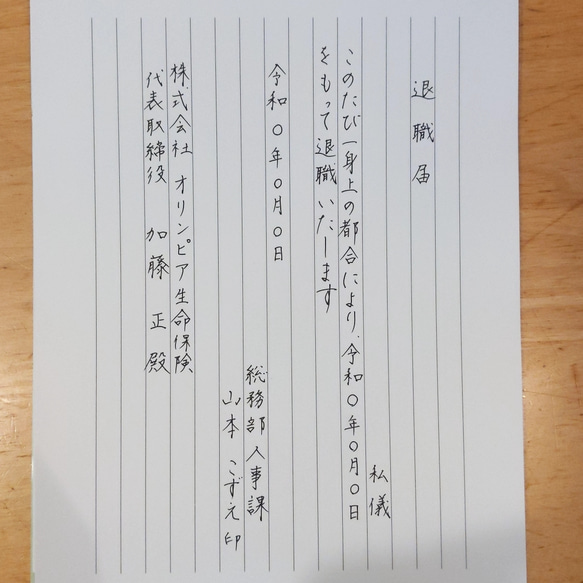 退職届
私儀
このたび一身上の都合により、令和〇年〇月〇日
をもって退職いたします
令和〇年〇月〇日
総務部人事課
山本こずえ印
株式会社 オリンピア生命保険
代表取締役 加藤正殿